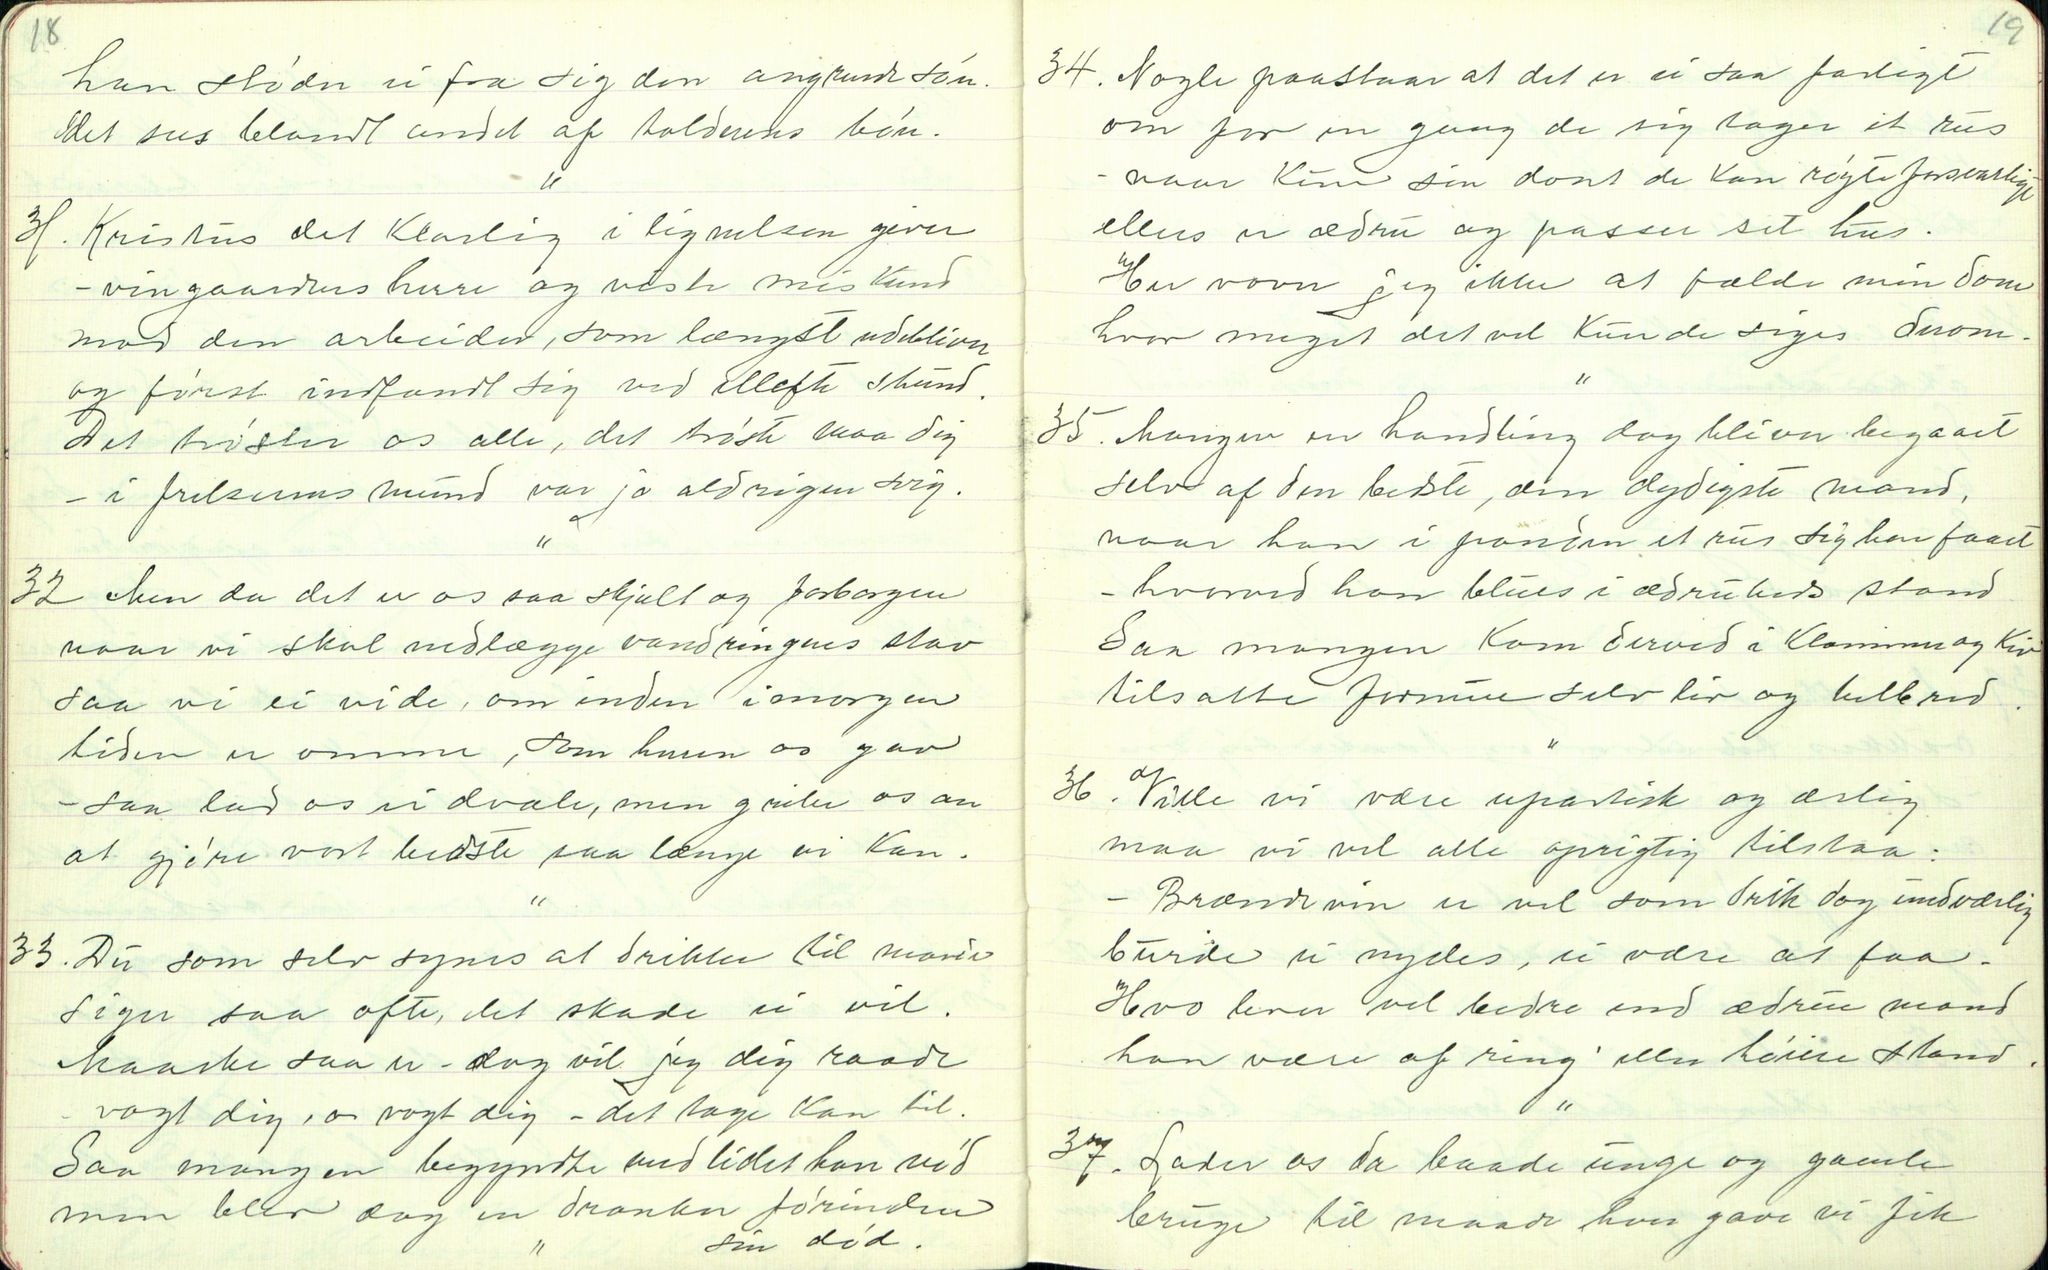 18
han støder ei fra sig den angrende søn.
Det sees blandt andet af tolderens bøn.
"
31. Kristus det klarlig i lignelsen giver
- vingaardens herre og viste miskund
mod den arbeider, som længst udebliver
og først indfandt sig ved ellefte stund.
Det trøster os alle, det trøste maa dig
- i frelserens mund var jo aldrigen svig.
"
32 Men da det er os saa skjult og forborgen
naar vi skal nedlægge vandringens stav
saa vi ei vide, om inden imorgen
tiden er omme, som herren os gav
- saa lad os ei dvale, men gribe os an
at gjøre vort bedste saa længe vi kan.
"
33. Du som selv synes at drikke til maade
siger saa ofte, det skade ei vil.
Maaske saa er - dog vil jeg dig raade
- vogt dig, o vogt dig - det tage kan til.
Saa mangen begyndte med lidet han nød
men blev dog en dranker førinden
" sin død.
19
34. Nogle paastaar at det er ei saa farligt
om for en gang de sig tager et rus
- naar kun sin dont de kan røgte forsvarligt
ellers er ædru og passer sit hus.
Her vover jeg ikke at fælde min dom
hvor meget det vel kunde siges derom.
"
35. Mangen en handling dog bliver begaaet
selv af den bedste, den dydigste mand,
naar han i panden et rus sig har faaet
- hvorved han blues i ædruheds stand
Saa mangen kom derved i klammer og kiv
tilsatte formue selv liv og helbred.
"
36. Ville vi være upartisk og ærlig
maa vi vel alle oprigtig tilstaa:
- Brændevin er vel som drik dog undværlig
burde ei nydes, ei være at faa.
Hvo lever vel bedre end ædrue mand
han være af ring' eller høiere stand.
"
37. Lader os da baade unge og gamle
bruge til maade hver gave vi fik